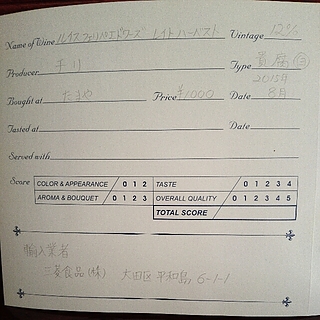 Name of Wine ルイス フェリペ エドワーズ レイト ハーベスト Vintage 12%
Producer チリ Type 貴腐
Bought at たまや Price ¥1000 Date 2015年 8月
Tasted at Date
Served with
Score COLOR & APPEARANCE 0 1 2 TASTE 0 1 2 3 4
AROMA & BOUQUET 0 1 2 3 OVERALL QUALITY 0 1 2 3 4 5
TOTAL SCORE
輸入業者
三菱食品(株) 大田区 平和島, 6-1-1